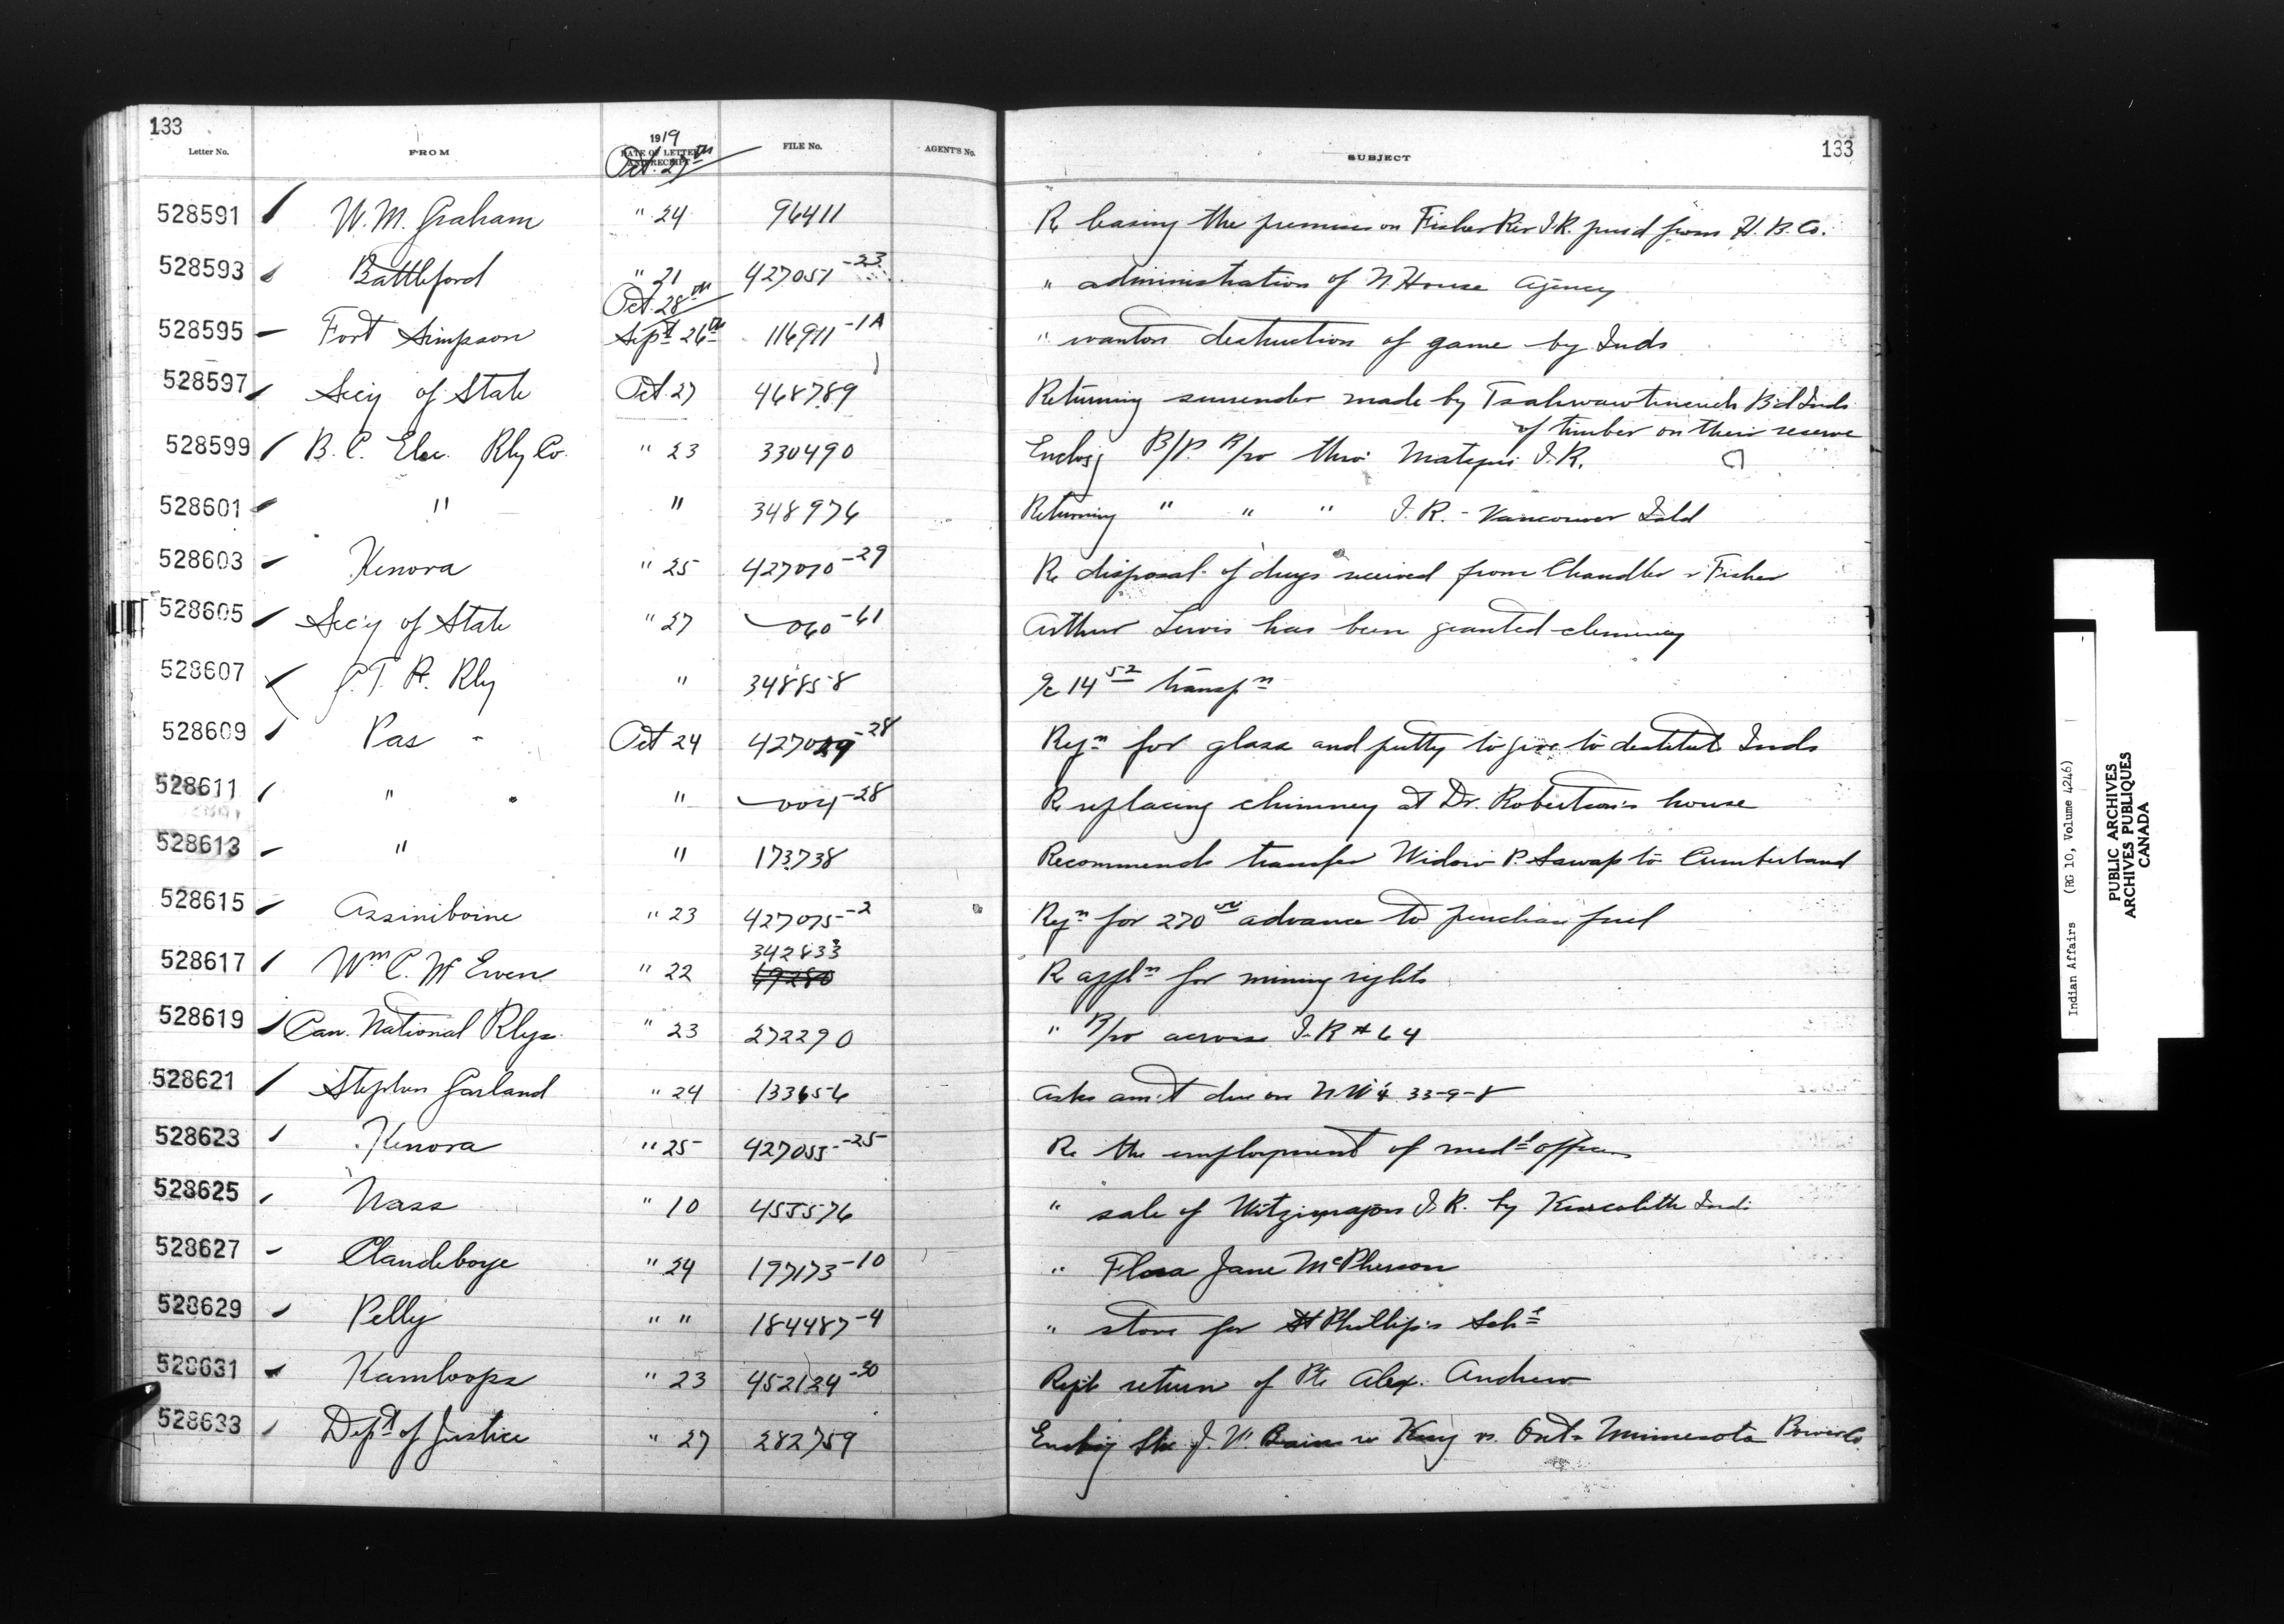 133
Letter No. FROM 1919 DATE OF LETTER AND RECEIPT FILE No. AGENT'S No. SUBJECT 133
Oct. 27th
528591 W. M. Graham " 24 96411 Re leasing the premises on Fisher Riv I.R. purd from H. B. Co.
528593 Battleford " 21 427051-23 " administration of N. House Agency
Oct. 28th
528595 Fort Simpson Sept 26th 116911-1A " wanton destruction of game by Inds
528597 Secy of State Oct. 27 468789 Returning surrender made by Bd Inds
of timber on their reserve
528599 B. C. Elec. Rly Co. " 23 330490 Enclosg B/P. R/w thro' Matsqui I.R.
528601 " " 348976 Returning " " " I.R. - Vancouver Isld
528603 Kenora " 25 427070-29 Re disposal of drugs received from Chandler & Fisher
528605 Sec'y of State " 27 060-61 Arthur Lewis has been granted clemency
528607 G.T.P. Rly " 348858 a/c 14 52 transpn
528609 Pas - Oct 24 -28 Reqn for glass and putty to give to destitute Inds
528611 " " 004-28 Re replacing chimney at Dr. Robertson's house
528613 " " 173738 Recommends transfer Widow P. Sawap to Cumberland
528615 Assiniboine " 23 427075-2 Reqn for 270 advance to purchase fuel
342833
528617 Wm C. McEwen " 22 69280 Re appln for mining rights
528619 Can. National Rlys. " 23 272290 " R/w across I.R # 64
528621 Stephen Garland " 24 133656 Asks am't due on N.W 4 33-9-8
528623 Kenora " 25 427055-25 Re the employment of medl officer
528625 Nass " 10 455576 " sale of I.R. by Kincolith Ind.
528627 Clandeboye " 24 197173-10 " Flora Jane McPherson
528629 Pelly " " 184487-4 " stove for St Phillip's Schl
528631 Kamloops " 23 452124-30 Rept return of Pte Alex. Andrew
528633 Dept of Justice " 27 282759 J. V. re King vs. Ont & Minnesota Power Co.
Indian Affairs (RG 10, Volume 4246)
PUBLIC ARCHIVES
ARCHIVES PUBLIQUES
CANADA